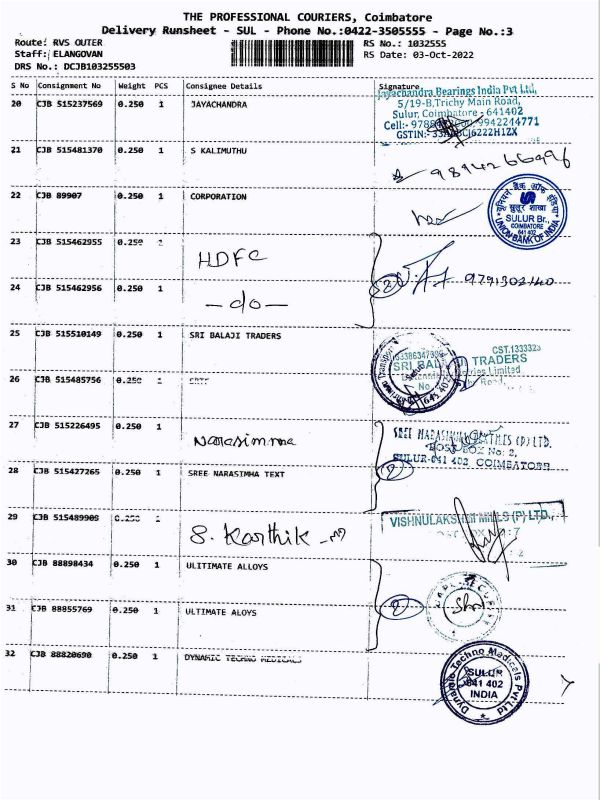 THE PROFESSIONAL COURIERS, Coimbatore
Delivery Runsheet - SUL - Phone No.:0422-3505555 - Page No.:3
Route: RVS OUTER
RS No.: 1032555
Staff: ELANGOVAN
RS Date: 03-Oct-2022
DRS No.: DCJB103255503
S No Consignment No Weight PCS Consignee Details Signature
20 CJB 515237569 0.250 1 JAYACHANDRA
Jayachandra Bearings India Pvt Ltd,
5/19-B,Trichy Main Road,
Sulur, Coimbatore - 641402
Cell:- 9942244771
GSTIN:-
21 CJB 515481370 0.250 1 S KALIMUTHU
22 CJB 89907 0.250 1 CORPORATION
यूनियन बैंक ऑफ इंडिया
सुलूर शाखा
SULUR Br.,
COIMBATORE
641 402
UNION BANK OF INDIA
23 CJB 515462955 0.250 1
HDFC
24 CJB 515462956 0.250 1
-do-
2
9791302140
25 CJB 515510149 0.250 1 SRI BALAJI TRADERS
CST.1333323
TRADERS
Limited
Road,
641 402
26 CJB 515485756 0.250 1
27 CJB 515226495 0.250 1
Narasimma
SREE (P) LTD.
POST BOX No: 2,
SULUR-641 402, COIMBATORE
28 CJB 515427265 0.250 1 SREE NARASIMHA TEXT
29 CJB 515489909 0.250 1
S. Karthik
VISHNULAKSHMI MILLS (P) LTD.,
30 CJB 88898434 0.250 1 ULITIMATE ALLOYS
31 CJB 88855769 0.250 1 ULTIMATE ALOYS
2
SECURITY
32 CJB 88820690 0.250 1 DYNAMIC TECHNO MEDICALS
Dynamic Techno Medicals Pvt Ltd
SULUR
641 402
INDIA